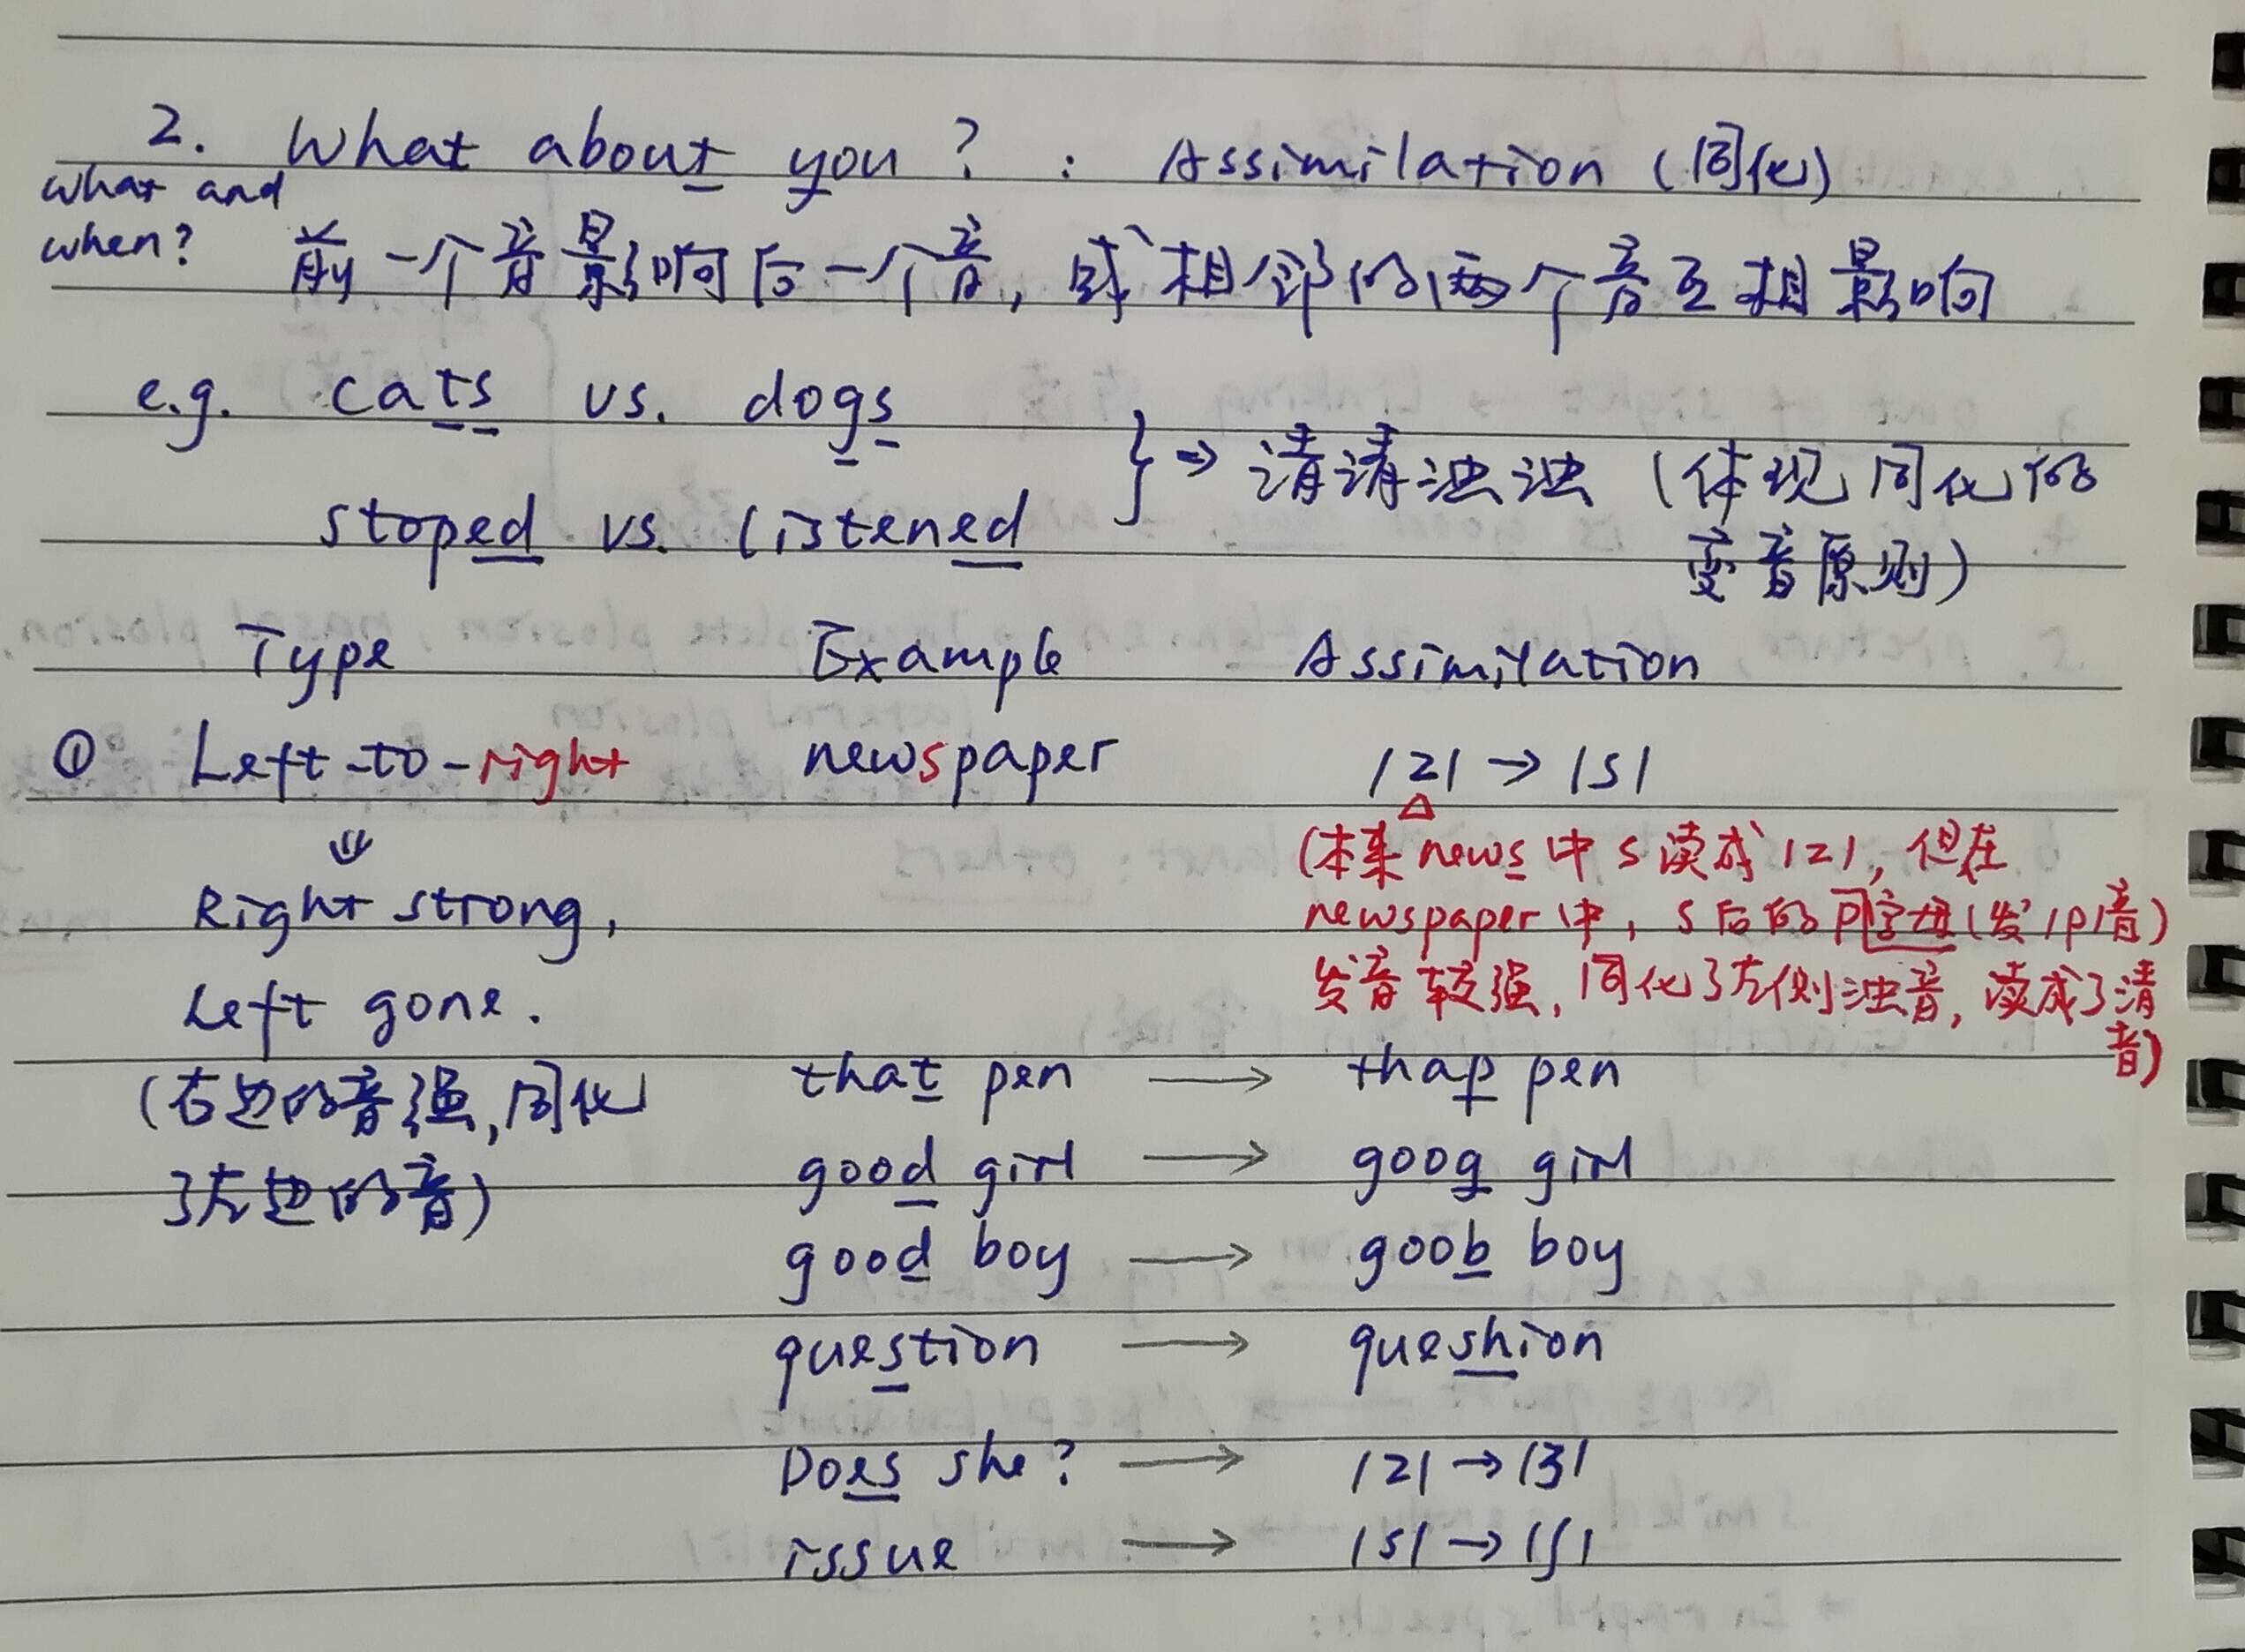 2. What about you? : Assimilation (同化)
what and
when?
前一个音影响后一个音, 或相邻的两个音互相影响
e.g. cats vs. dogs
stoped vs. listened
} ⇒ 清清浊浊 (体现同化的
变音原则)
Type Example Assimilation
① Left-to-right newspaper /z/ → /s/
⇓
Right strong,
Left gone.
(右边的音强,同化
了左边的音)
(本来 news 中 s 读成 /z/, 但在
newspaper 中, s 后的 p 字母 (发 /p/ 音)
发音较强, 同化了左侧浊音, 读成了清
音)
that pen → thap pen
good girl → goog girl
good boy → goob boy
question → queshion
Does she? → /z/ → /ʒ/
issue → /s/ → /ʃ/